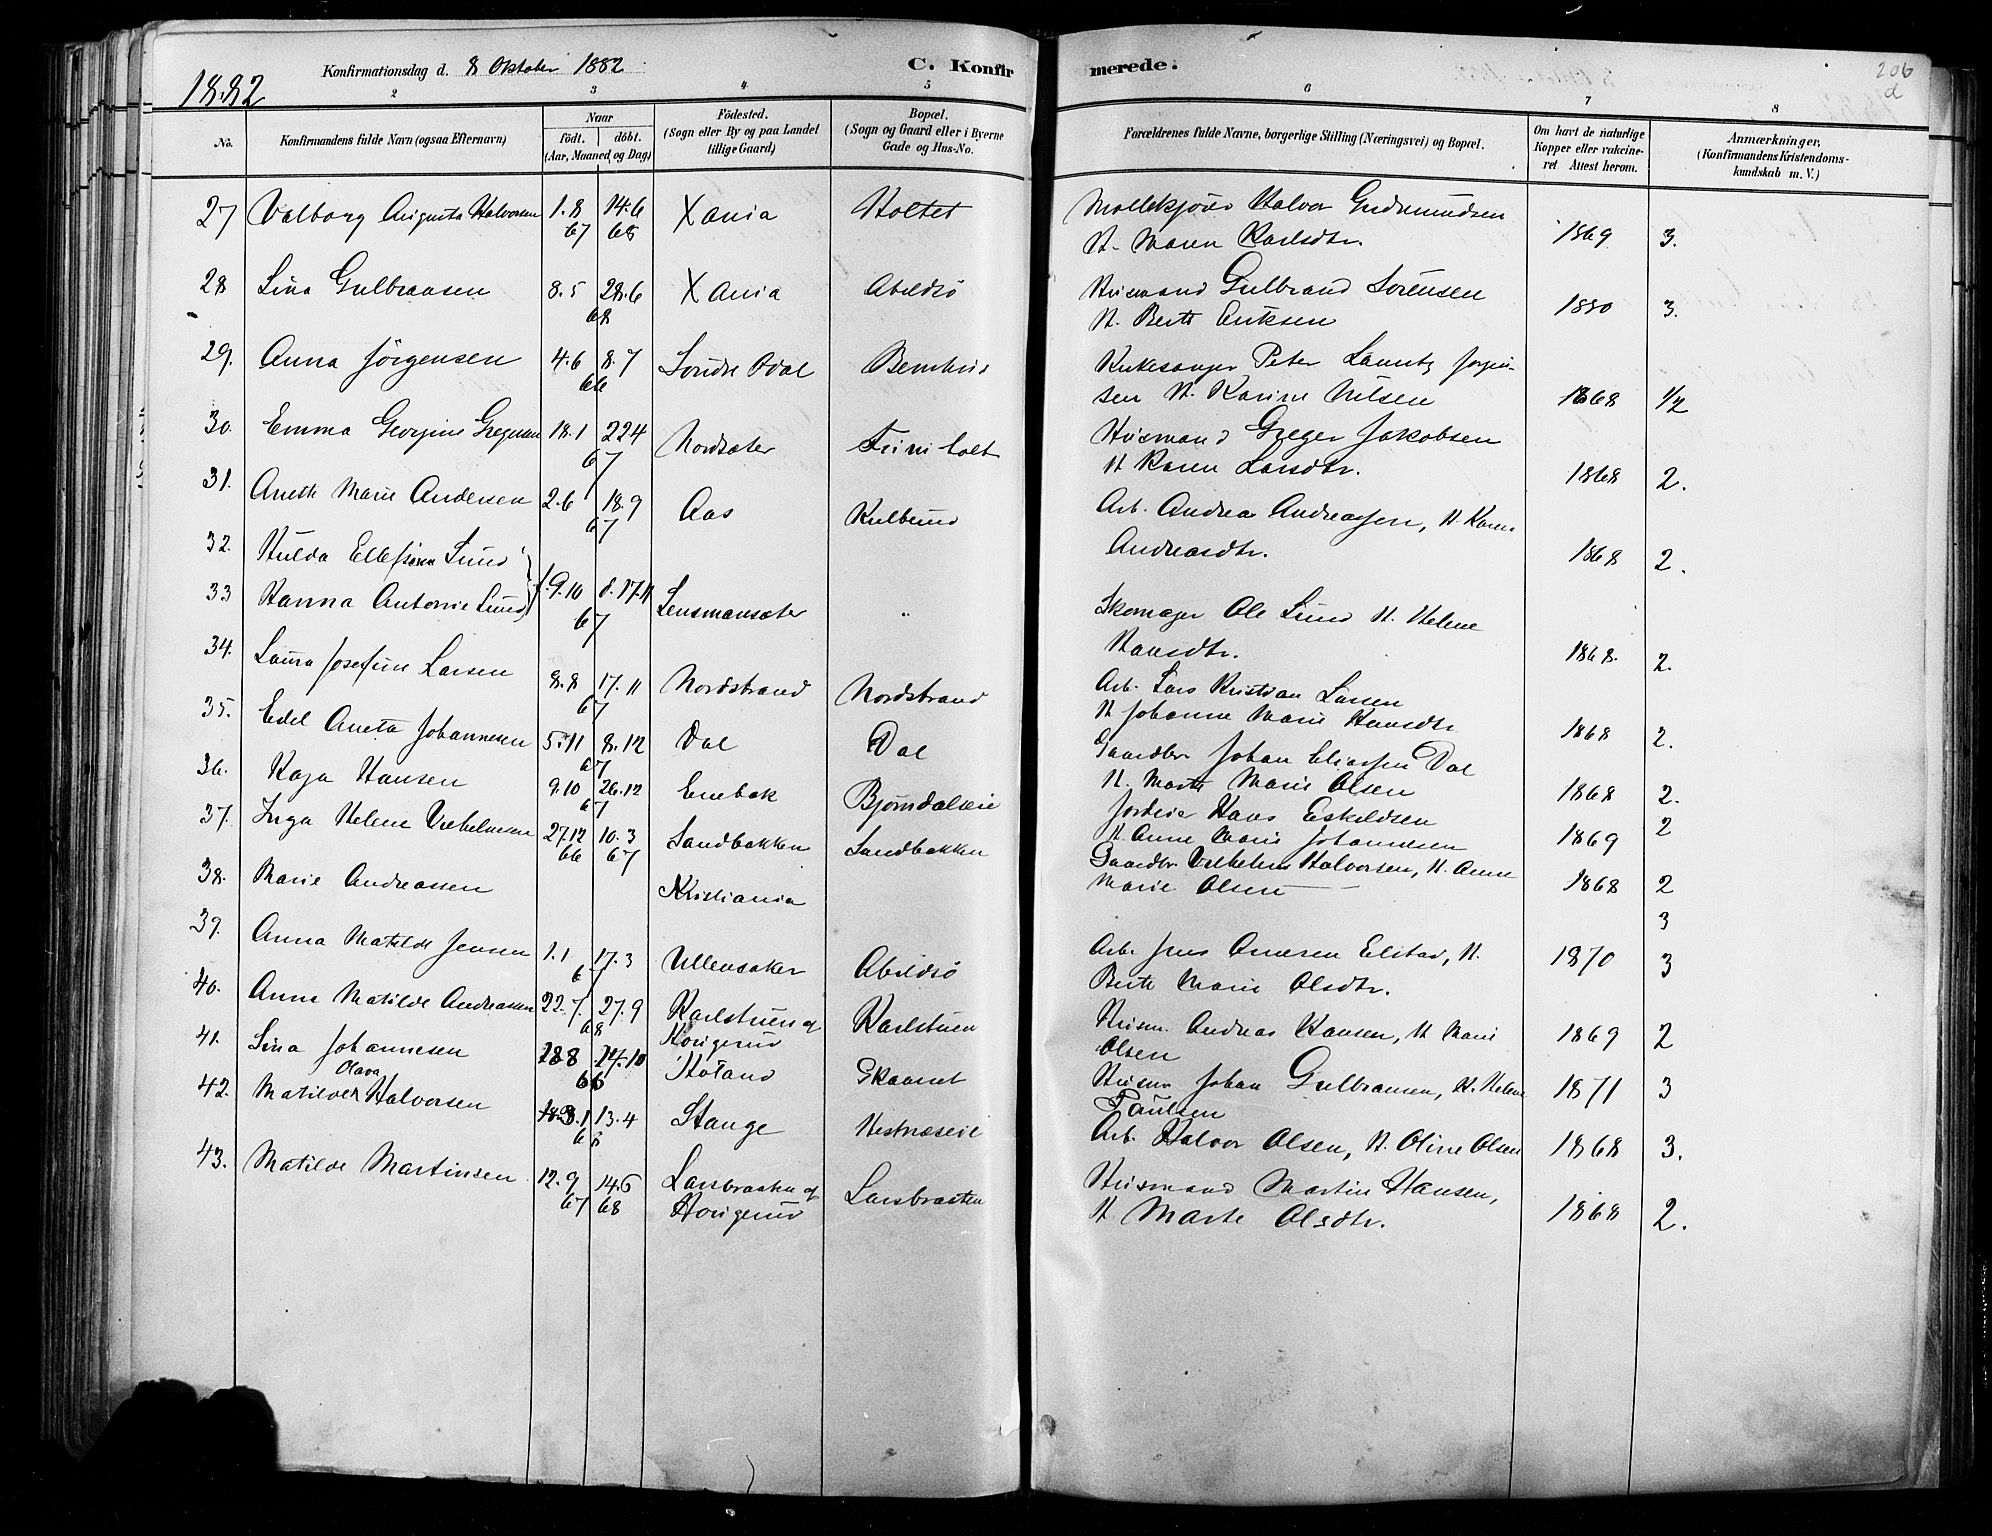 1882
Konfirmationsdag d. 8 Oktober 1882
C. Konfirmerede.
206
d
2 3 4 5 6 7 8
No.
Konfirmandens fulde Navn (ogsaa Efternavn)
Naar
födt. döbt.
(Aar, Maaned og Dag)
Födested.
(Sogn eller By og paa Landet
tillige Gaard)
Bopæl.
(Sogn og Gaard eller i Byerne
Gade og Hus-No.
Forældrenes fulde Navne, borgerlige Stilling (Næringsvei) og Bopæl.
Om havt de naturlige
Kopper eller vakcine-
ret Attest herom.
Anmærkninger,
(Konfirmandens Kristendoms-
kundskab m. V.)
27 Valborg Augusta Halvorsen 1.8 67 14.6 68 Xania Holtet Halvor Gudmundsen
H. Maren Karlsdtr. 1869 3.
28 Lina Gulbransen 8.5 28.6 68 Xania Abildsö Husmand Gulbrand Sörensen
H. Berte Eriksen 1880 3.
29. Anna Jörgensen 4.6 8.7 66 Söndre Odal Kirkesanger Peter Lauritz Jorgen-
sen H. Karine Nilsen 1868 1/2
30. Emma Georgine Gregersen 18.1 22.4 67 Nordsæter Husmand Greger Jakobsen
H Karen Larsdtr. 1868 2.
31. Anette Marie Andersen 2.6 18.9 67 Aas Arb. Andrea Andreassen, H. Karen
Andreasdtr. 1868 2.
32. Hulda Ellefine Lund
33 Hanna Antonie Lund f. 9.10 d. 17.11 67 Lensmansæter " Skomager Ole Lund H. Helene
Hansdtr. 1868. 2.
34. Laura Josefine Larsen 8.8 17.11 67 Nordstrand Nordstrand Arb. Lars Kristian Larsen
H Johanne Marie Hansdtr 1868 2.
35. Edel Aneta Johannesen 5.11 8.12 67 Dal Dal Gaardbr Johan Eliassen Dal
H. Marte Marie Olsen 1868 2.
36. Kaja Hansen 9.10 26.12 67 Enebak Bjørndalseie Jordeier Hans Eskildsen
H. Anne Marie Johannesen 1869 2
37. Inga Helene Vilhelmsen 27.12 66 10.3 67 Sandbakken Sandbakken Gaardbr. Vilhelm Halvorsen, H. Anne
Marie Olsen 1868 2
38. Marie Andreassen Kristiania 3
39. Anna Matilde Jensen 1.1 17.3 67 Ullensaker Abildsö Arb. Jens Elstad, H.
Berte Marie Olsdtr. 1870 3
40. Anne Matilde Andreassen 22.7. 27.9 68 Karlstuen af
Horigerud Karlstuen Husm. Andreas Hansen, H Marie
Olsen 1869 2
41. Lina Johannesen 28.8 14.10 66 Höland Skaaret Husm Johan Gulbransen, H. Helene
Paulsen 1871 3
42. Matilde Olava Halvorsen 8.1 13.4 Stange Hestnæseie Arb. Halvor Olsen, H. Oline Olsen 1868 3.
43. Matilde Martinsen 12.9 67 14.6 68 Larsbraaten af
Horigerud Larsbraaten Husmand Martin Hansen,
H Marte Olsdtr. 1868 2.